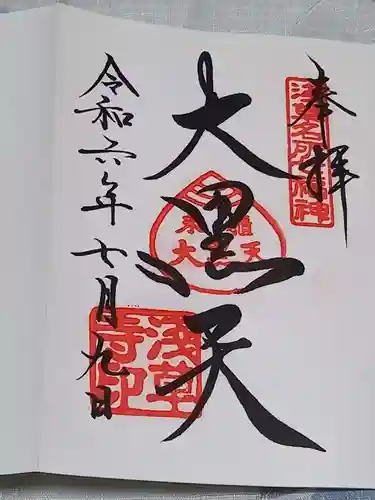 奉拝
浅草名所七福神
大黒天
大黒天
浅草寺印
令和六年七月九日